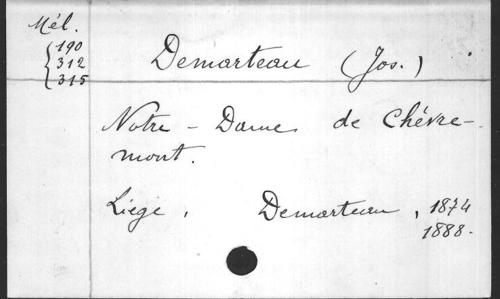 Mél.
190
312
315
Demarteau (Jos.)
Notre-Dame de Chèvre-
mont.
Liège, Demarteau, 1874
1888.